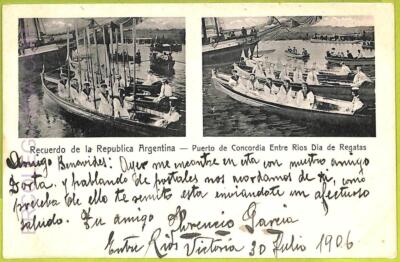 Recuerdo de la Republica Argentina — Puerto de Concordia Entre Rios Dia de Regatas
Amigo Benavides: Ayer me encontre en esta con nuestro amigo
Dorta. y hablando de postales nos acordamos de ti, como
prueba de ello te remito esta enviándote un afectuoso
saludo. Tu amigo Florencio Garcia
Entre Rios Victoria 30 Julio 1906